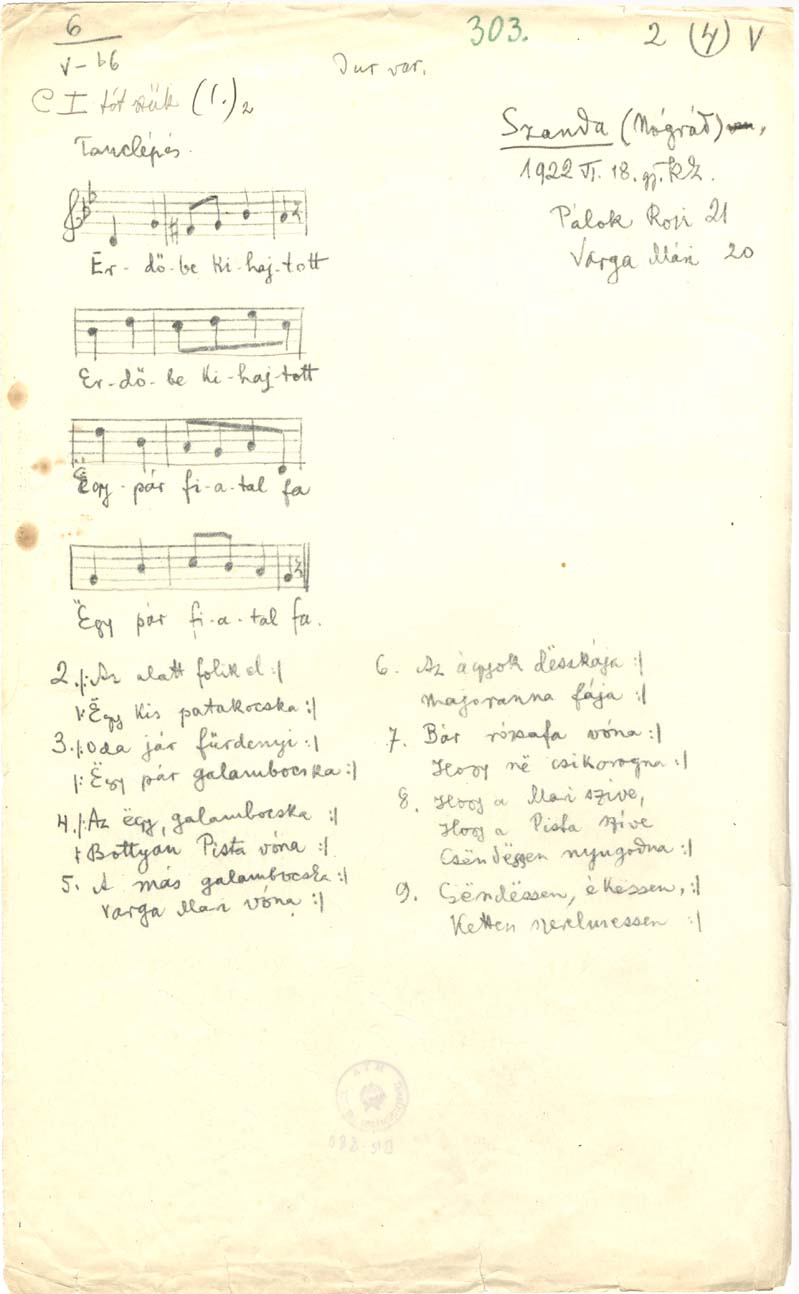 6
V-b6
303.
2 (4) V
Dur var.
C I tót szűk (1.)2
Tánclépés.
Szanda (Nógrád)
1922 VI. 18. gy. KZ.
Pálok Rozi 21
Varga Mári 20
Er-dő-be ki-haj-tott
Er-dő-be ki-haj-tott
Ëgy-pár fi-a-tal fa
Ëgy pár fi-a-tal fa.
2. /: Az alatt folik el :/
/: Ëgy kis patakocska :/
3. /: Oda jár fürdenyi :/
/: Ëgy pár galambocska :/
4. /: Az ëgy, galambocska :/
/: Bottyán Pista vóna :/
5. A más galambocska :/
Varga Mari vóna :/
6. Az ágyok dëszkája :/
majoranna fája :/
7. Bár rózsafa vóna :/
Hogy në csikorogna :/
8. Hogy a Mari szíve,
Hogy a Pista szíve
Csëndëssen nyugodna :/
9. Csëndëssen, ékessen, :/
Ketten szerelmessen :/